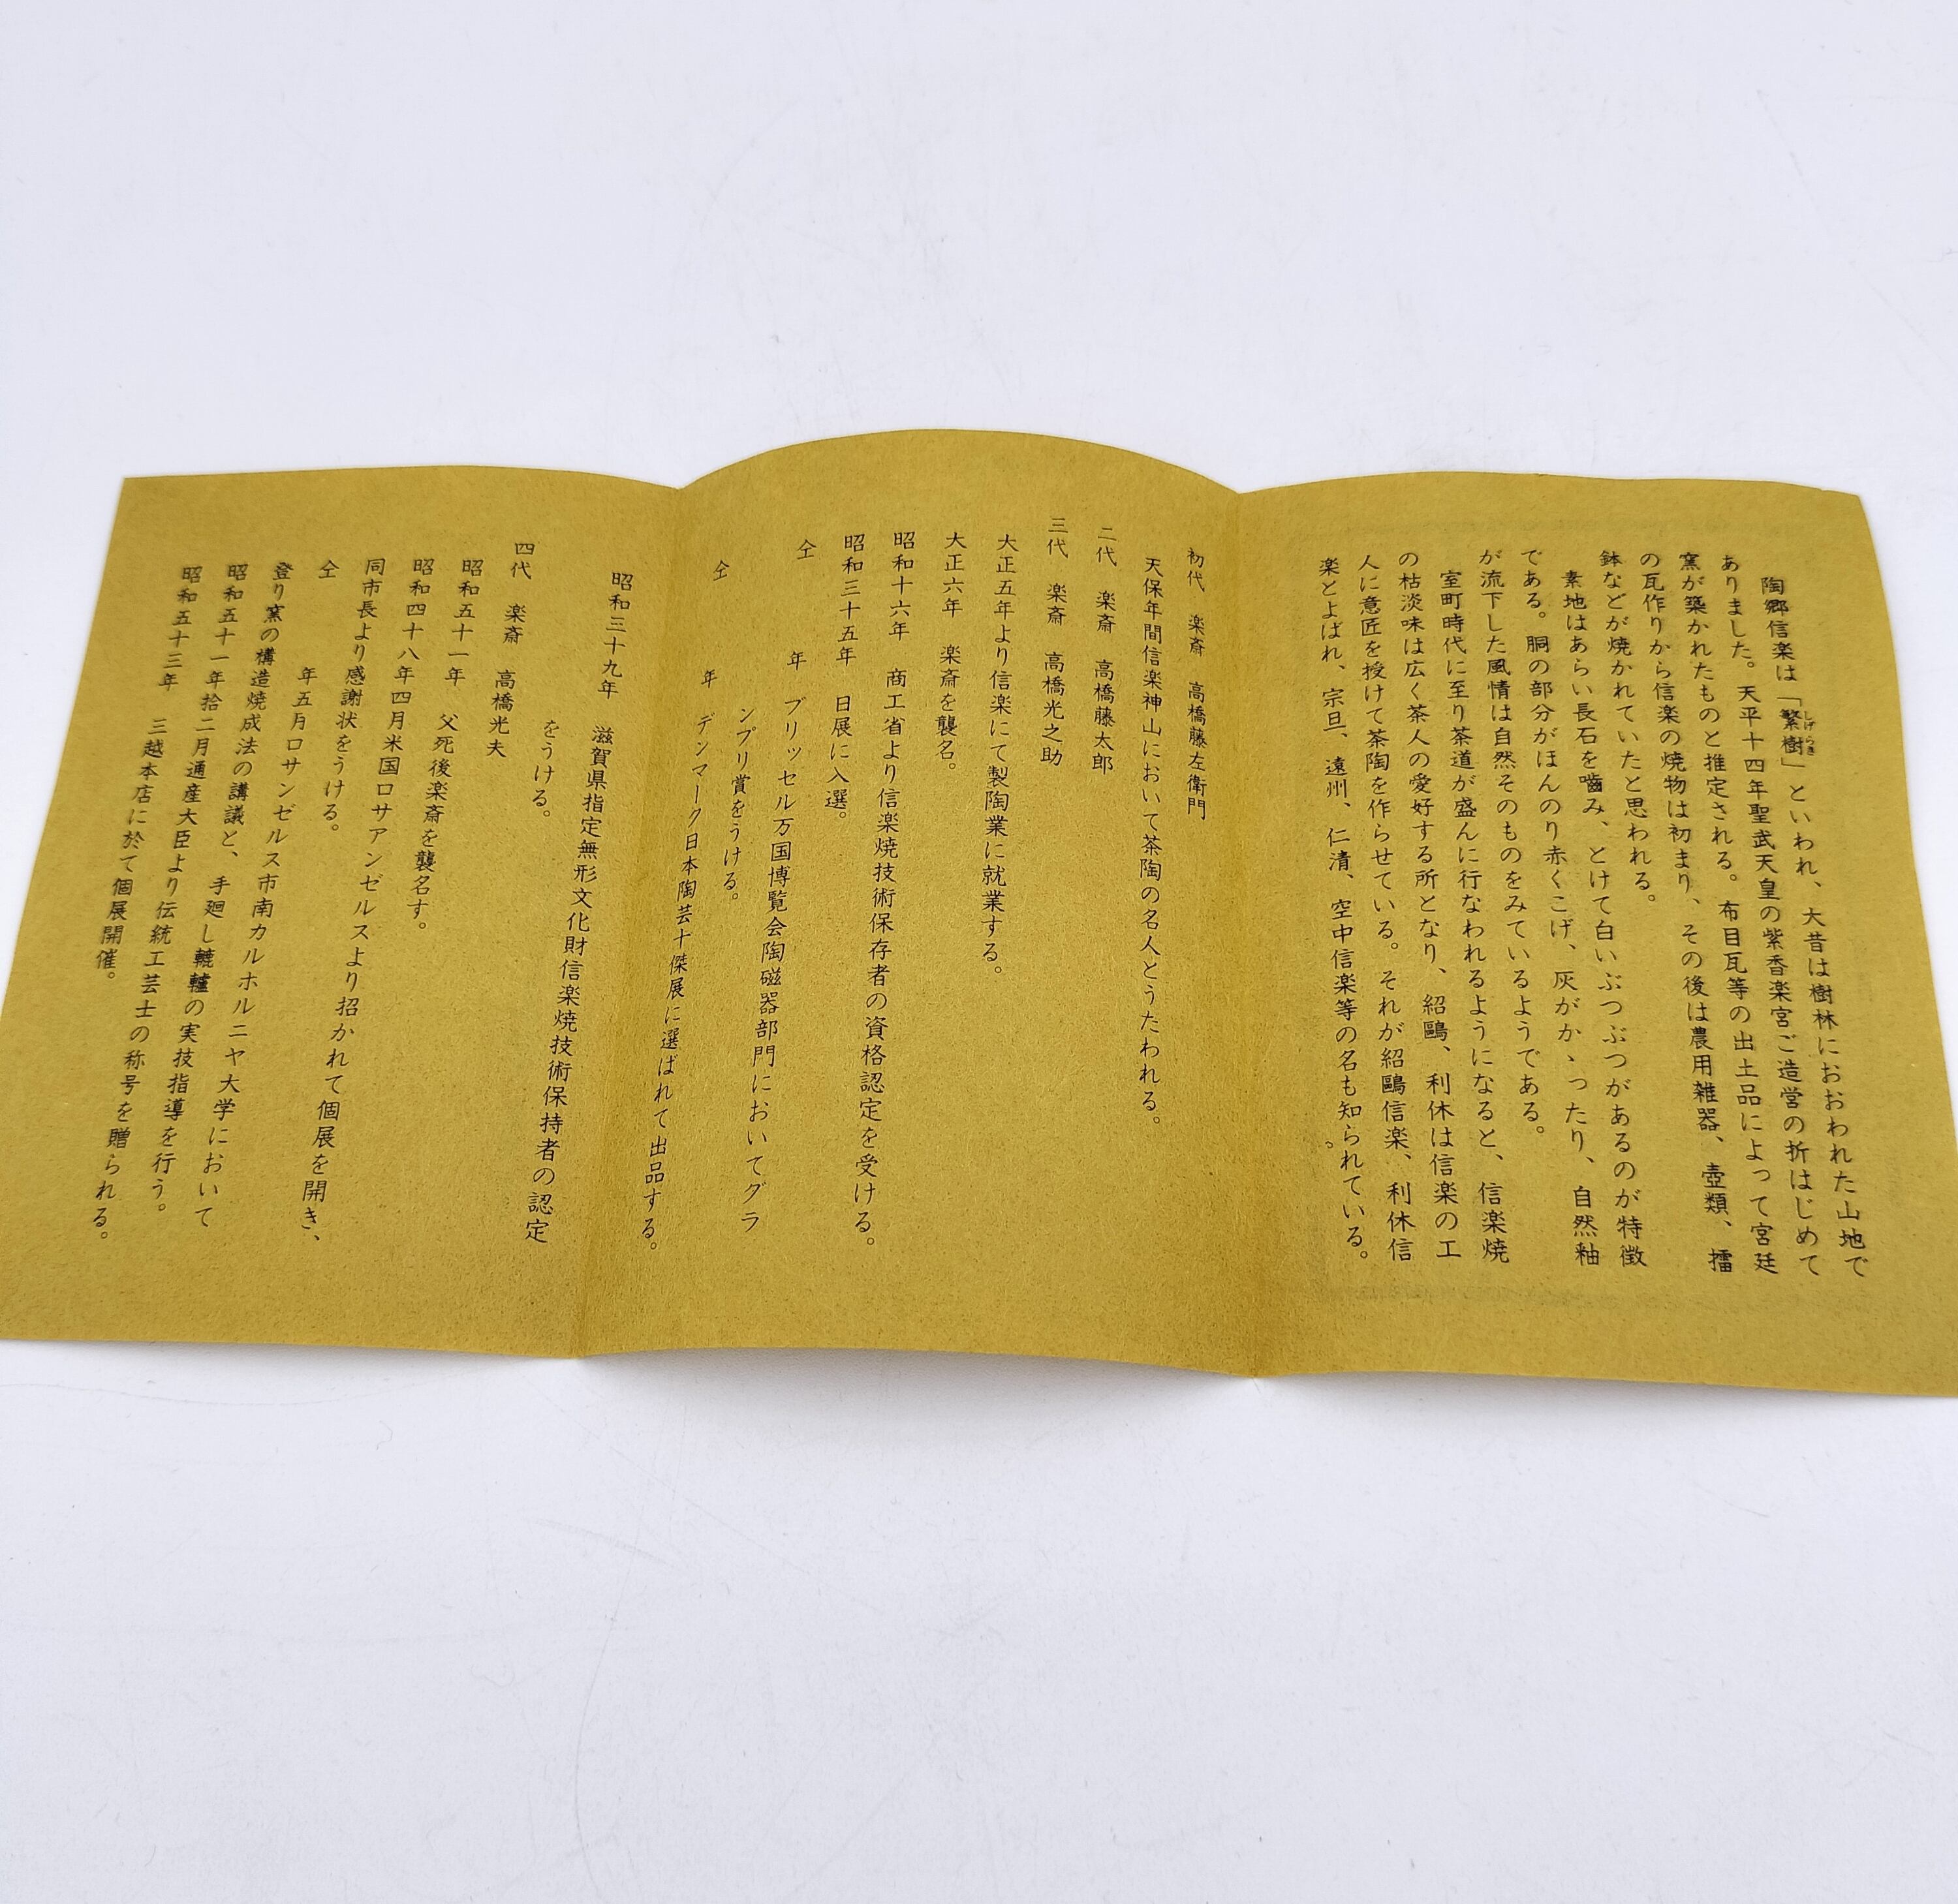 陶郷信楽は「繁樹」といわれ、大昔は樹林におおわれた山地で
しげらき
ありました。天平十四年聖武天皇の紫香楽宮ご造営の折はじめて
窯が築かれたものと推定される。布目瓦等の出土品によって宮廷
の瓦作りから信楽の焼物は初まり、その後は農用雑器、壺類、擂
鉢などが焼かれていたと思われる。
素地はあらい長石を嚙み、とけて白いぶつぶつがあるのが特徴
である。胴の部分がほんのり赤くこげ、灰がかゝったり、自然釉
が流下した風情は自然そのものをみているようである。
室町時代に至り茶道が盛んに行なわれるようになると、信楽焼
の枯淡味は広く茶人の愛好する所となり、紹鷗、利休は信楽の工
人に意匠を授けて茶陶を作らせている。それが紹鷗信楽、利休信
楽とよばれ、宗旦、遠州、仁清、空中信楽等の名も知られている。
初代 楽斎 高橋藤左衛門
天保年間信楽神山において茶陶の名人とうたわれる。
二代 楽斎 高橋藤太郎
三代 楽斎 高橋光之助
大正五年より信楽にて製陶業に就業する。
大正六年 楽斎を襲名。
昭和十六年 商工省より信楽焼技術保存者の資格認定を受ける。
昭和三十五年 日展に入選。
仝 年 ブリッセル万国博覧会陶磁器部門においてグラ
ンプリ賞をうける。
仝 年 デンマーク日本陶芸十傑展に選ばれて出品する。
昭和三十九年 滋賀県指定無形文化財信楽焼技術保持者の認定
をうける。
四代 楽斎 高橋光夫
昭和五十一年 父死後楽斎を襲名す。
昭和四十八年四月米国ロサアンゼルスより招かれて個展を開き、
同市長より感謝状をうける。
仝 年五月ロサンゼルス市南カルホルニヤ大学において
登り窯の構造焼成法の講議と、手廻し轆轤の実技指導を行う。
昭和五十一年拾二月通産大臣より伝統工芸士の称号を贈られる。
昭和五十三年 三越本店に於て個展開催。